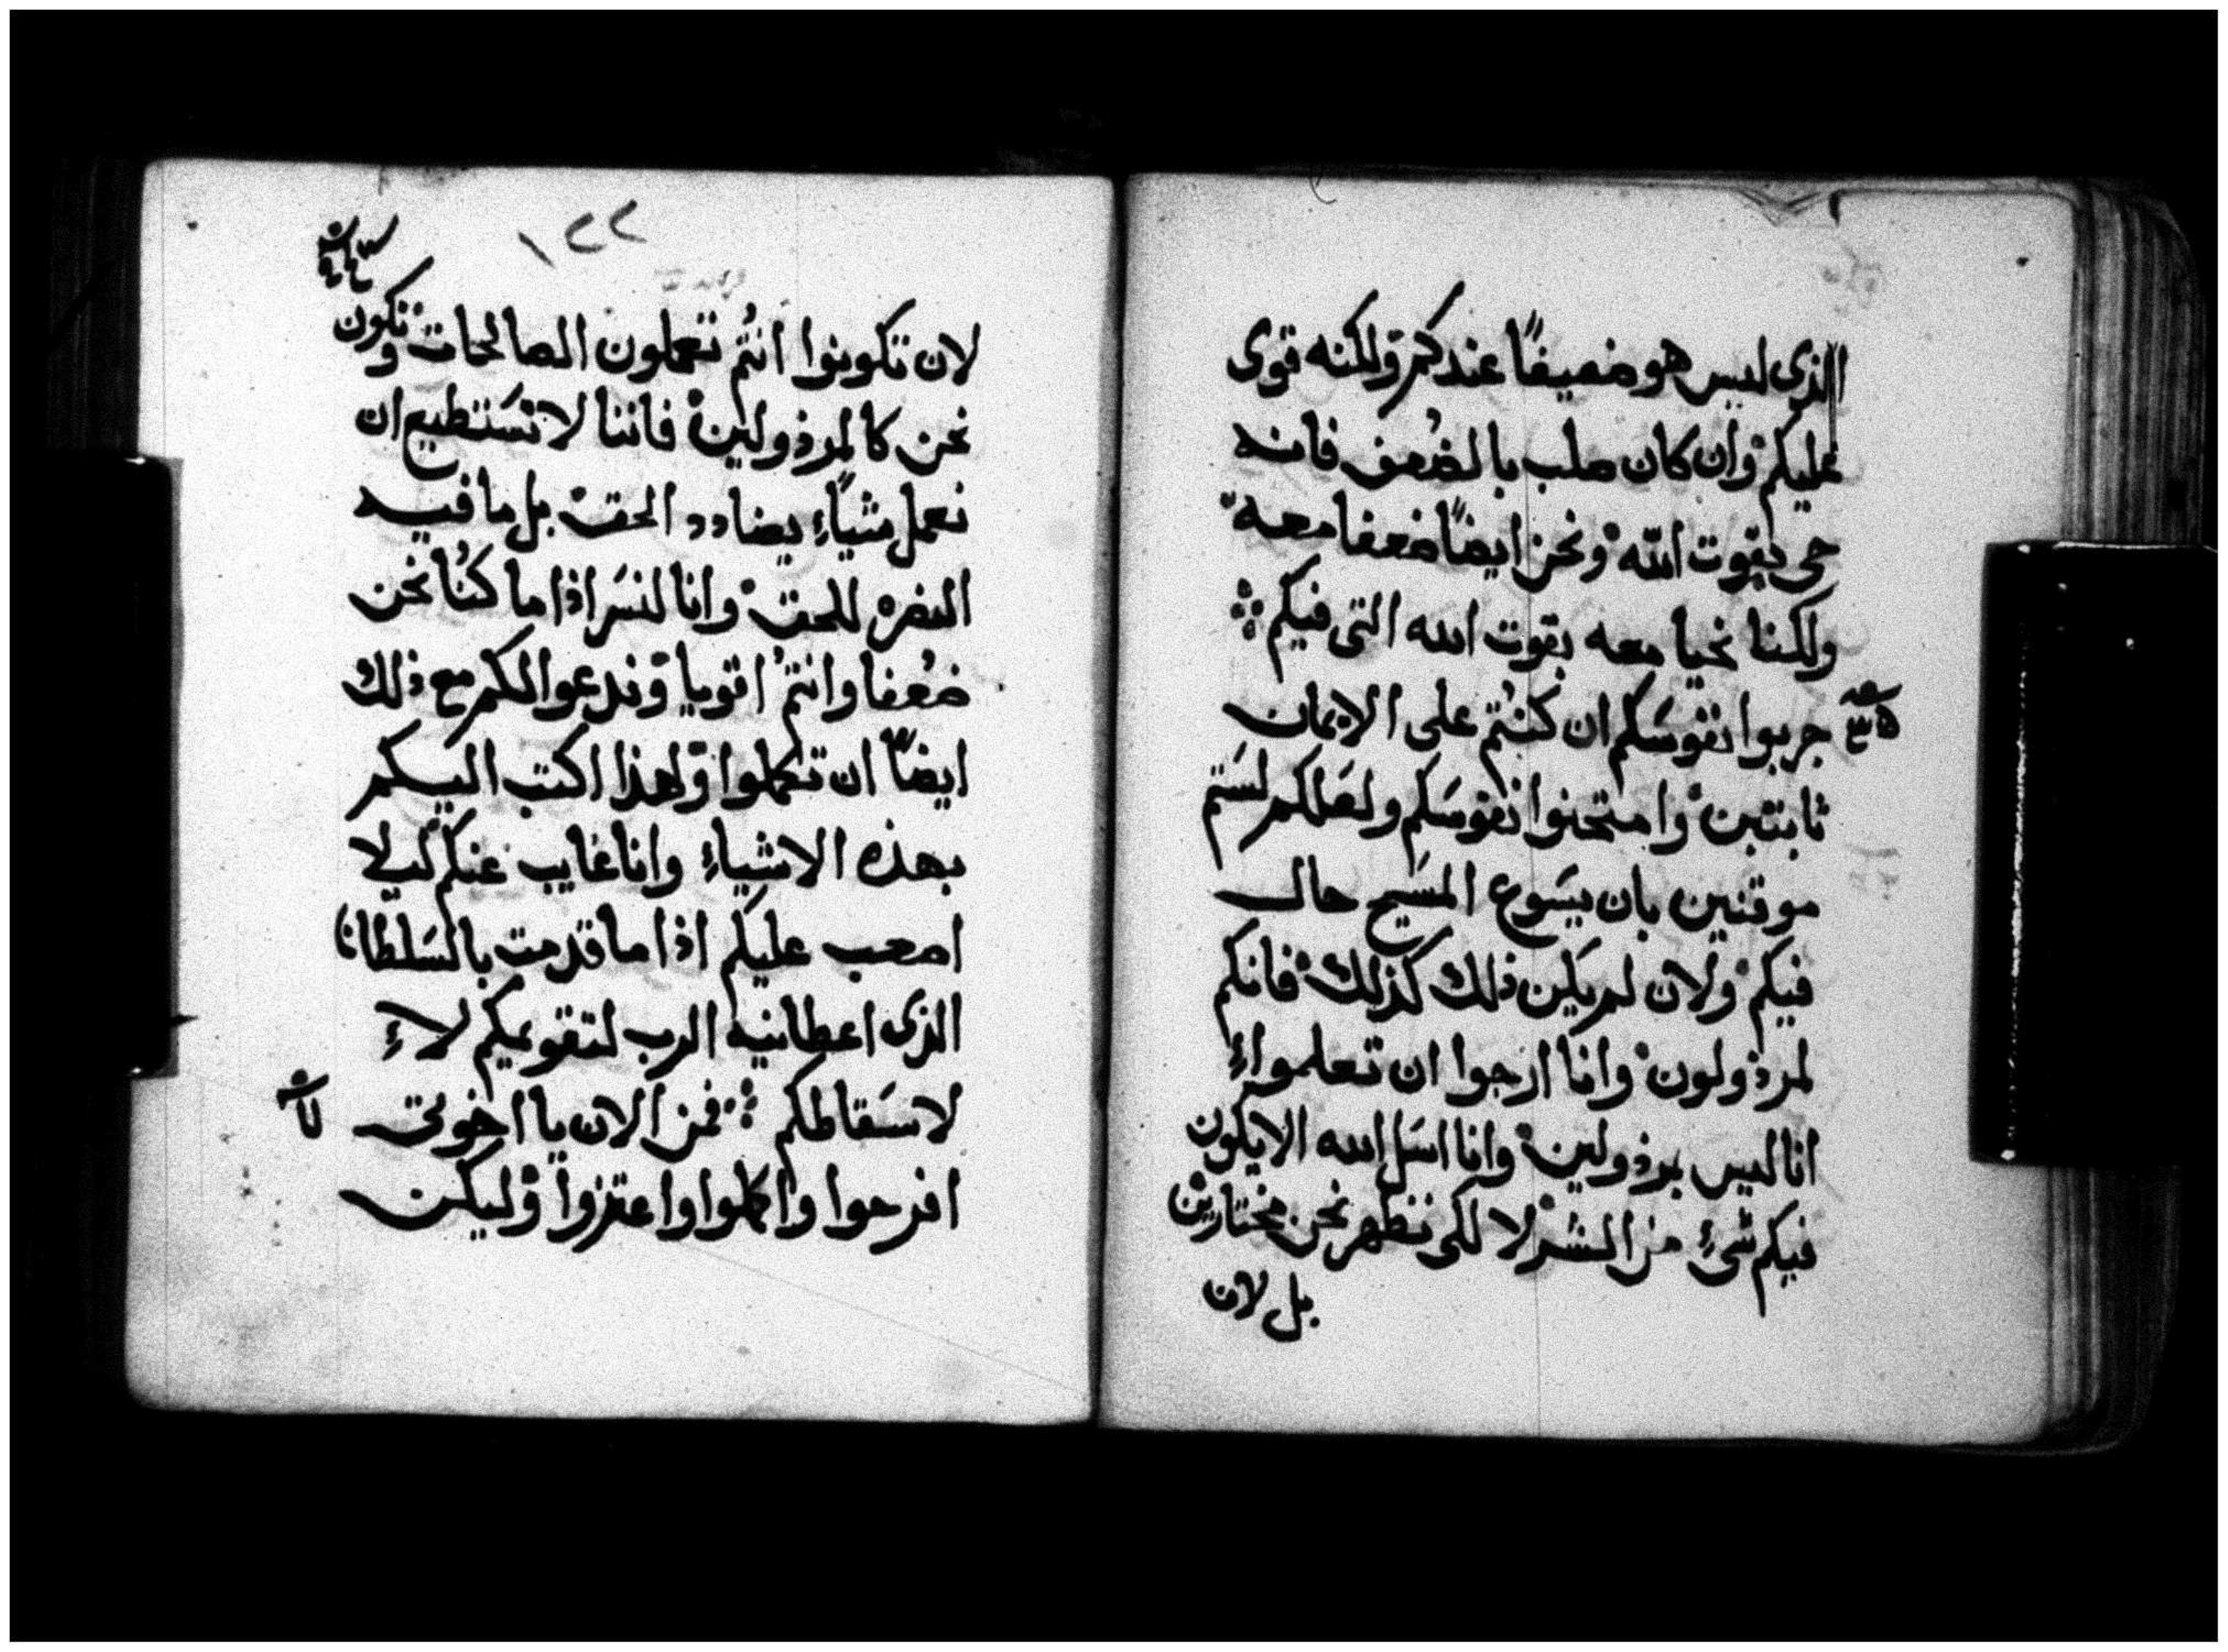 الذى ليس هو ضعيفًا عندكم ولكنه قوى
عليكم وان كان صلب بالضُعف فانه
حى بقوت الله ونحن ايضًا ضعفا معه
ولكننا نحيا معه بقوت الله التى فيكم
جربوا نفوسَكم ان كنتُم على الايمان
ثابتين وامتحنوا نفوسَكم ولعَلكم لسَتم
موقنين بان يسَوع المسَيح حال
فيكم ولان لم يكن ذلك كذلك فانكم
لمرذولون وانا ارجوا ان تعلموا
انا ليس برذولين وانا اسَل الله الا يكون
فيكم شىء من الشر لا لكى نظهر نحن مختارين
بل لان
١٢٢
لان تكونوا انتُم تعملون الصالحات ونكون
نحن كالمرذولين فاننا لا نسَتطيع ان
نعمل شيًاء يضادد الحق بل ما فيه
النصره للحق وانا لنسَر اذا ما كنُا نحن
ضعُفا وانتمُ اقويا وندعوا لكم مع ذلك
ايضًا ان تكملوا ولهذا اكتب اليكم
بهذه الاشياء وانا غايب عنكم ليلا
اصعب عليكم اذا ما قدمت بالسَلطان
الذى اعطانيه الرب لتقويمكم لا
لاسَقاطكم فمن الان يا اخوتى
افرحوا واكملوا واعتزوا وليكن